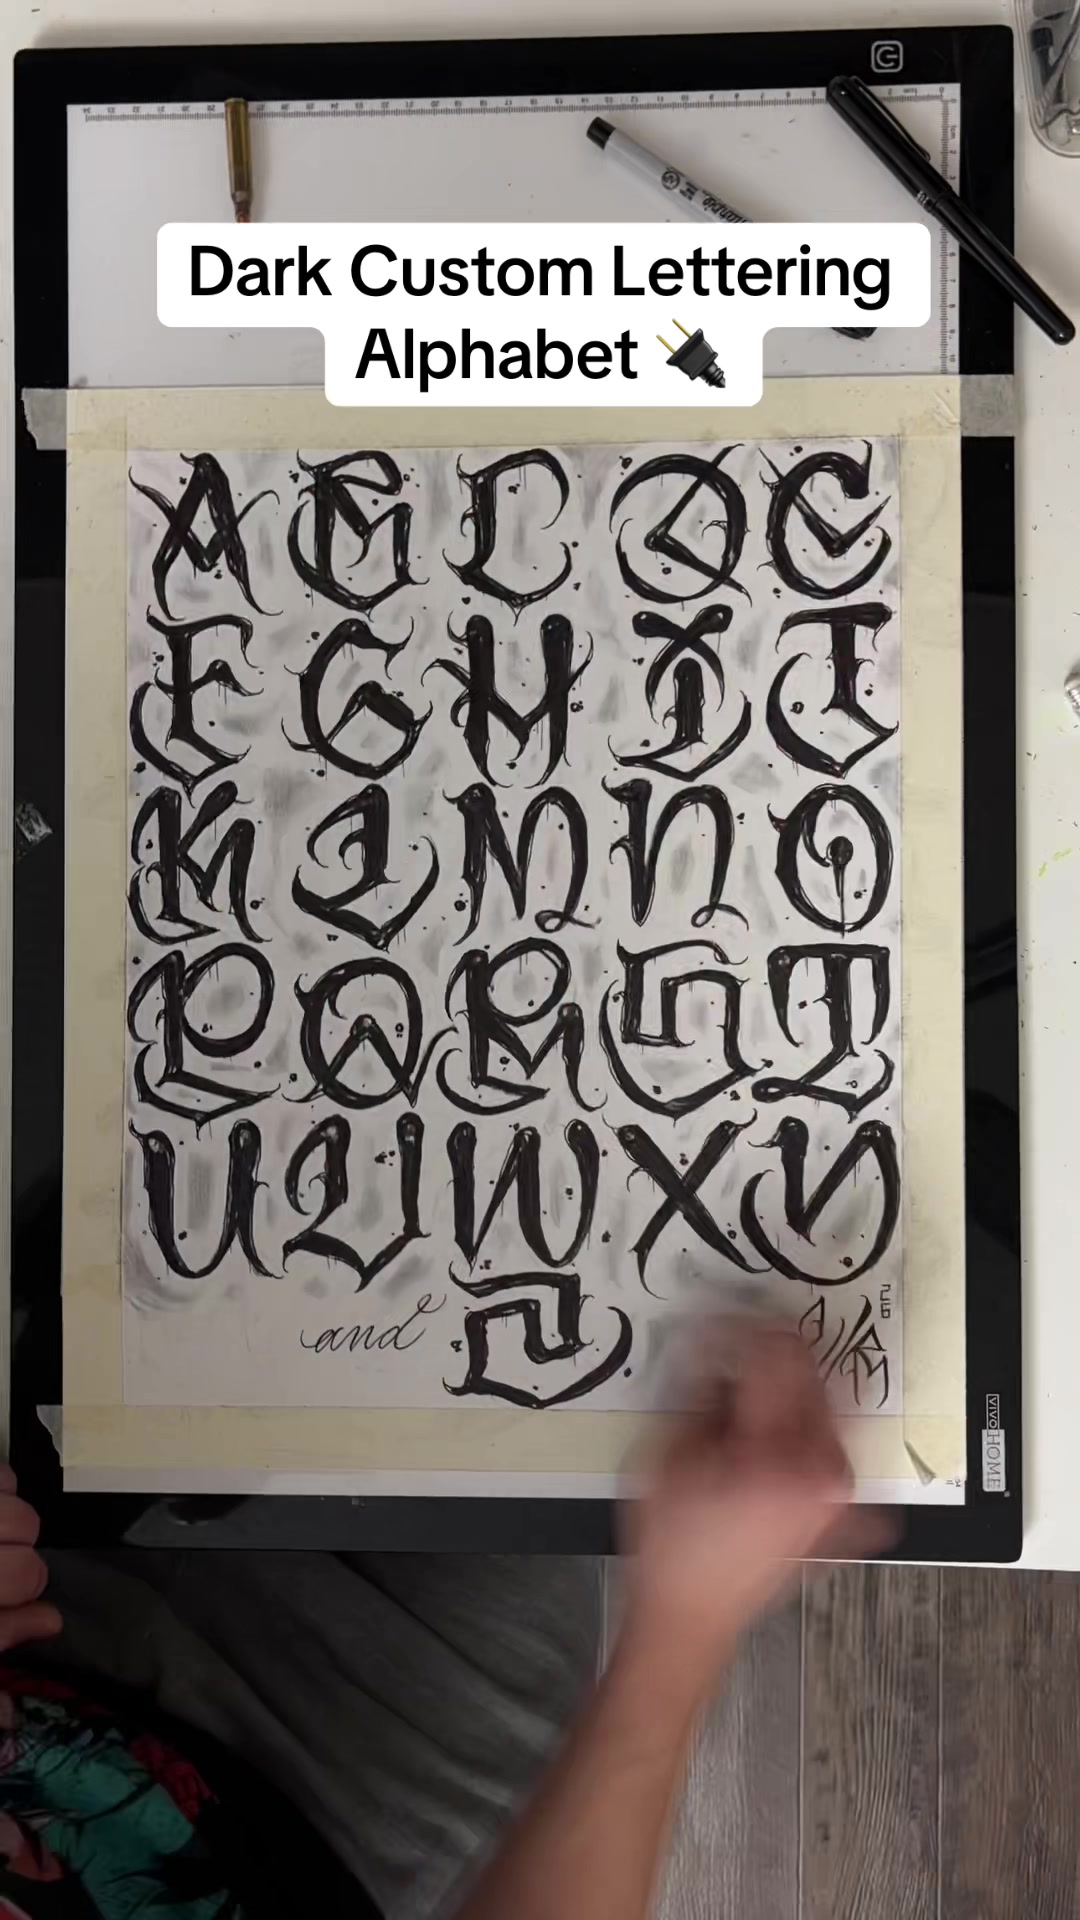 Dark Custom Lettering
Alphabet 🔌
A B C D E
F G H I J
K L M N O
P Q R S T
U V W X Y
and Z
26
VIVOHOME